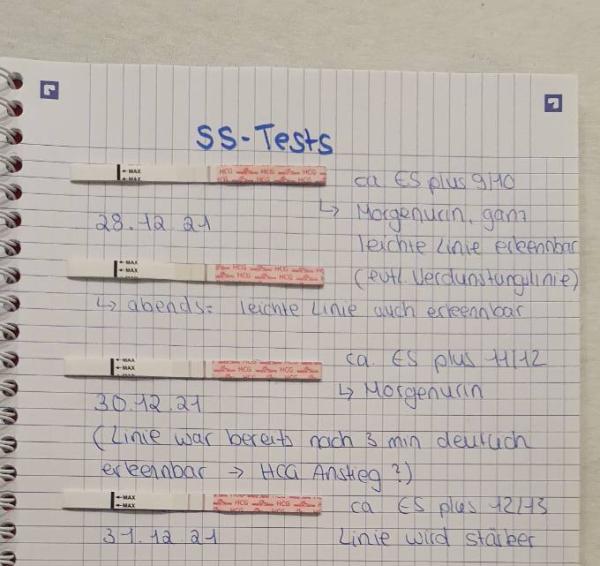 SS-Tests
←MAX
←MAX
HCG HCG HCG
HCG HCG
ca ES plus 9/10
28.12 21
↳ Morgenurin, ganz
leichte Linie erkennbar
←MAX
←MAX
HCG HCG
HCG
(evtl. Verdunstungslinie)
↳ abends: leichte Linie auch erkennbar
←MAX
←MAX
HCG
ca. ES plus 11/12
↳ Morgenurin
30.12.21
(Linie war bereits nach 3 min deutlich
erkennbar → HCG Anstieg?)
←MAX
←MAX
HCG HCG
HCG HCG
ca ES plus 12/13
31.12 21
Linie wird stärker